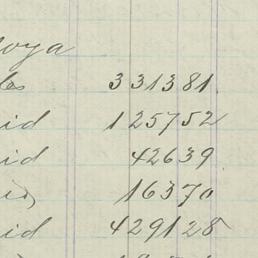 oya
331381
id 125752
id 42639
16370
id 429128